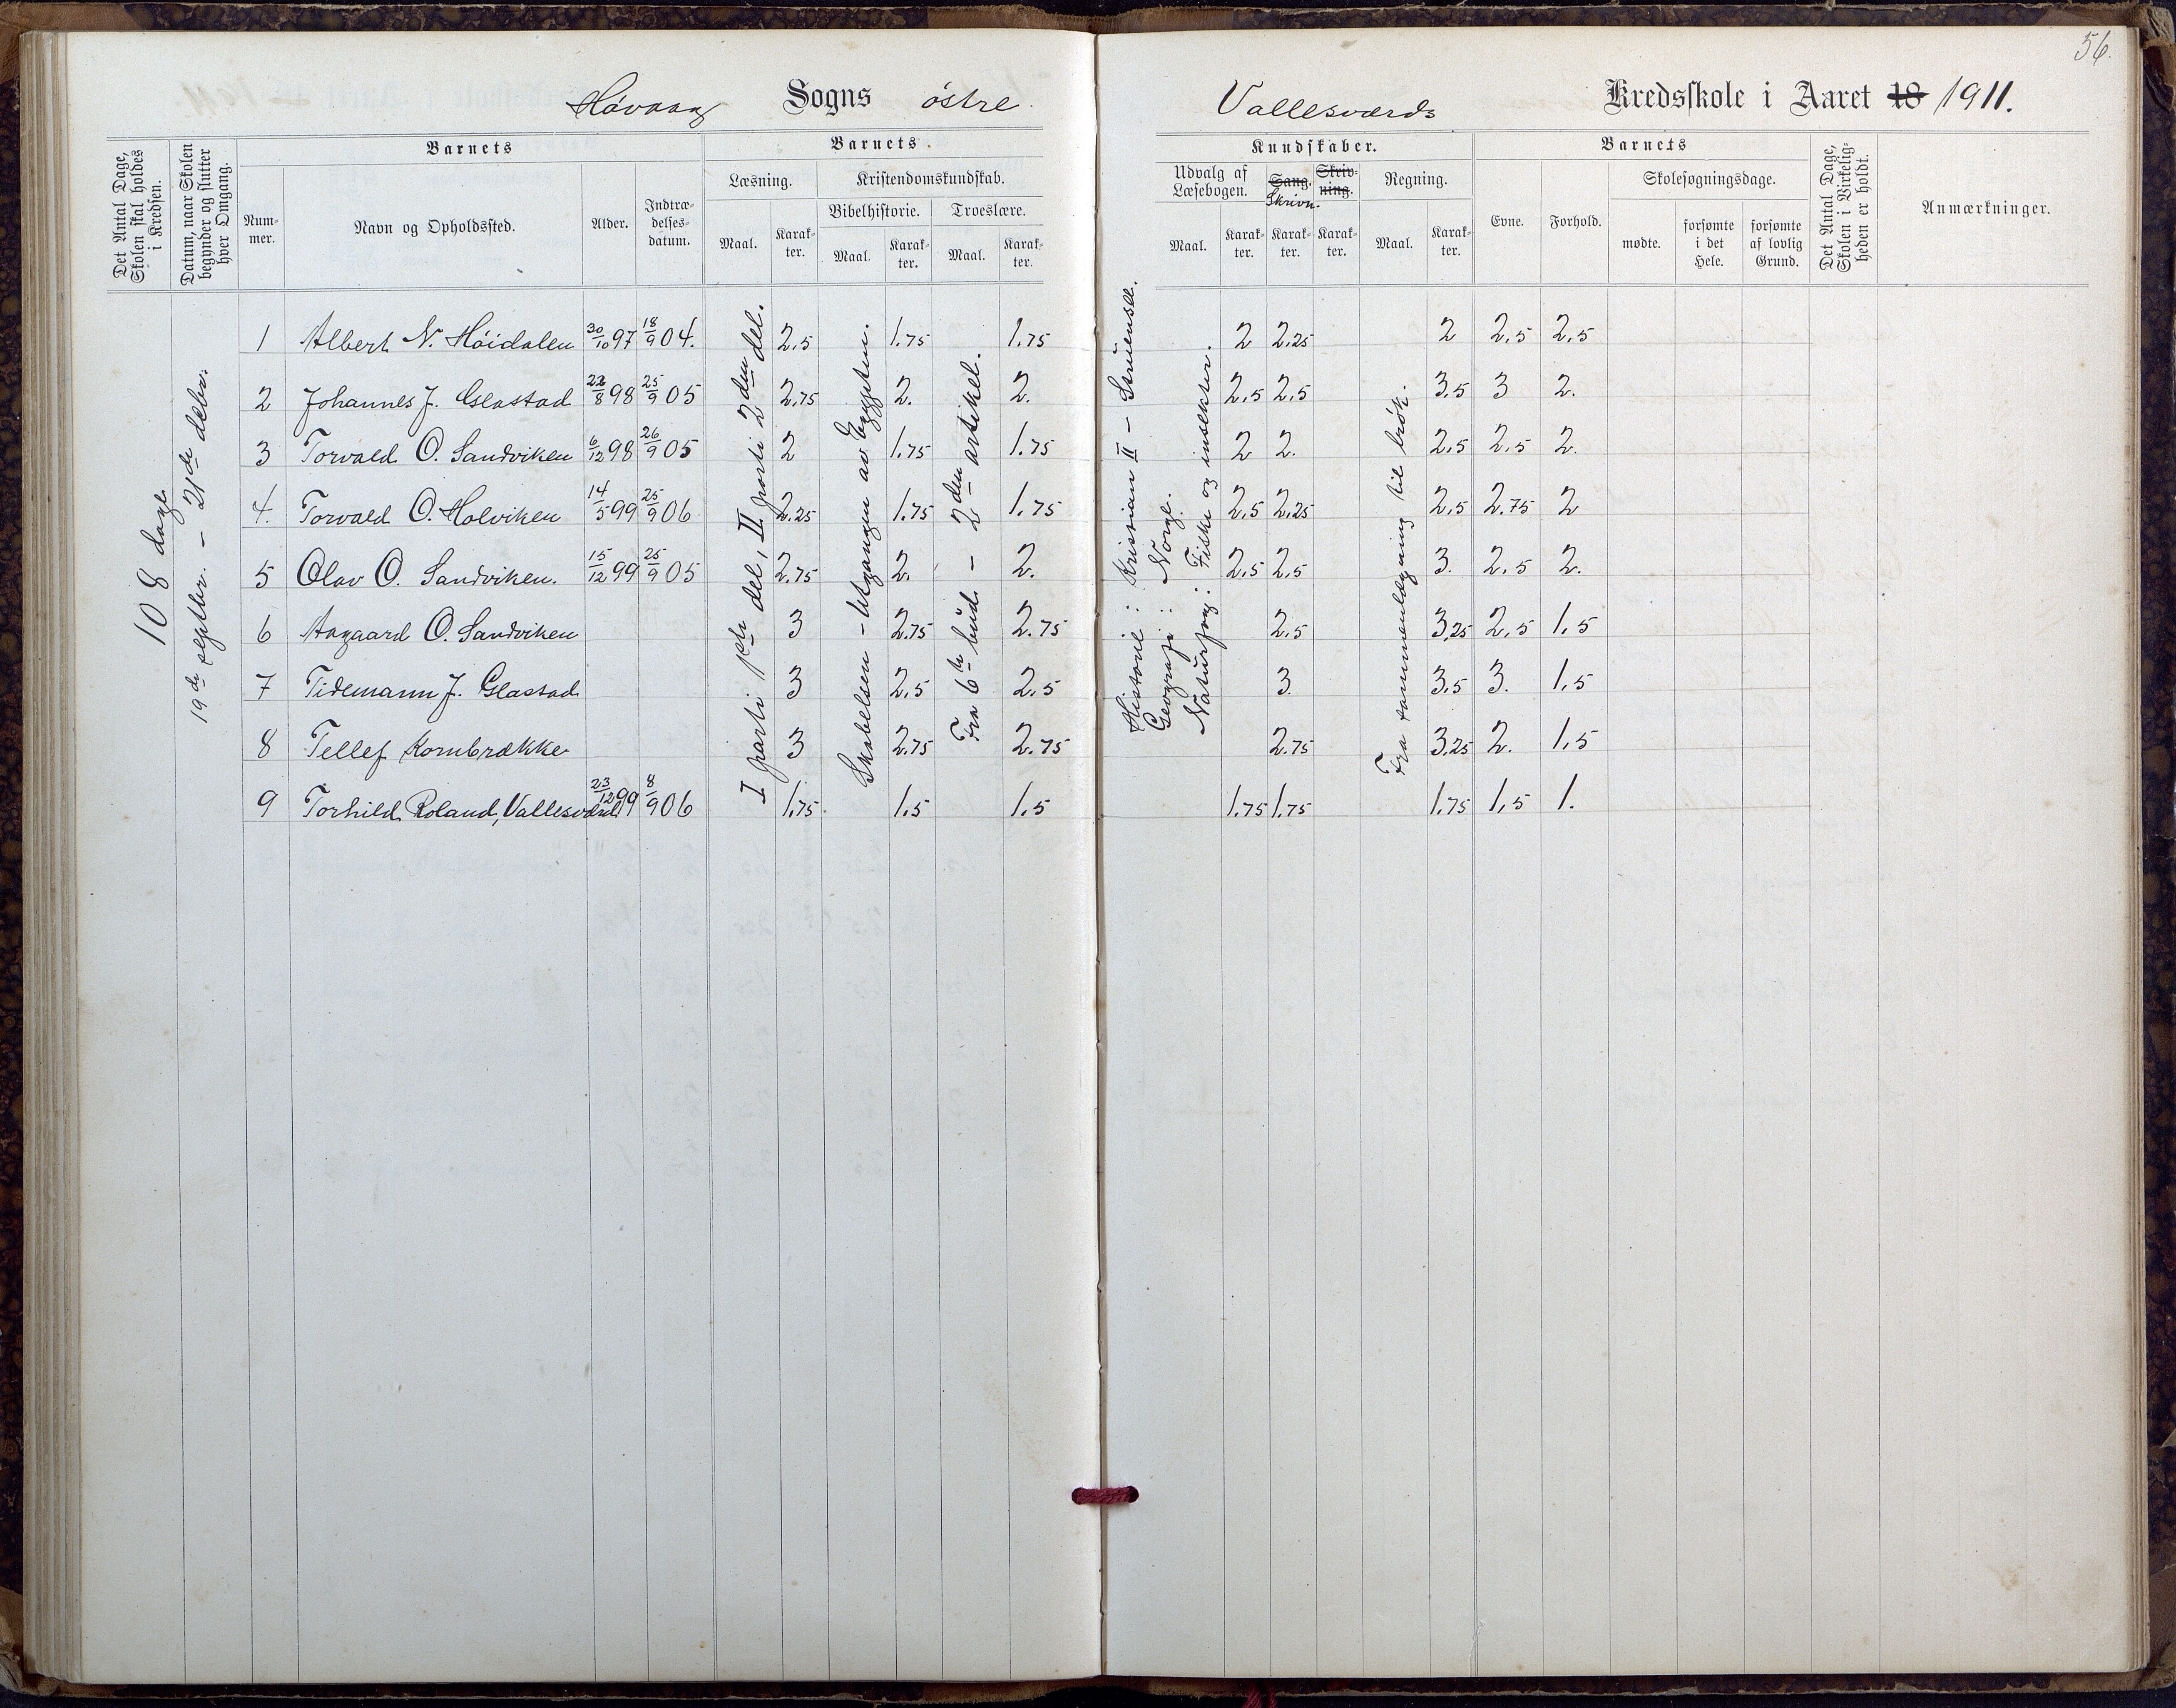 56.
Høvaag Sogns østre
Vallesværds Kredsskole i Aaret 18 1911.
Det Antal Dage, Skolen skal holdes i Kredsen.
Datum, naar Skolen begynder og slutter hver Omgang.
Barnets
Nummer.
Navn og Opholdssted.
Alder.
Indtrædelsesdatum.
Barnets
Læsning.
Maal.
Karakter.
Kristendomskundskab.
Bibelhistorie.
Maal.
Karakter.
Troeslære.
Maal.
Karakter.
Kundskaber.
Udvalg af Læsebogen.
Maal.
Karakter.
Sang.
Skrivn.
Karakter.
Skrivning.
Karakter.
Regning.
Maal.
Karakter.
Barnets
Evne.
Forhold.
Skolesøgningsdage.
mødte.
forsømte i det Hele.
forsømte af lovlig Grund.
Det Antal Dage, Skolen i Virkeligheden er holdt.
Anmærkninger.
108 dage
19de septbr. – 21de debr.
I parti 1ste del, II parti 2den del.
Skabelsen - Utgangen av Egypten.
Fra 6te bud – 2den artikel.
Historie : Kristian II – Struensee.
Geografi : Norge.
Naturfag : Fiske og insekter.
Fra sammenlægning til brøk.
1 Albert N. Høidalen 30/10 97 18/9 04. 2,5 1.75 1.75 2 2,25 2 2,5 2,5
2 Johannes J. Glastad 22/8 98 25/9 05 2,75 2. 2. 2,5 2,5 3,5 3 2.
3 Torvald O. Sandviken 6/12 98 26/9 05 2 1.75 1.75 2 2. 2,5 2,5 2.
4. Torvald O. Holviken 14/5 99 25/9 06 2.25 1.75 1.75 2,5 2,25 2,5 2.75 2
5 Olav O. Sandviken. 15/12 99 25/9 05 2.75 2. 2. 2,5 2,5 3. 2,5 2.
6 Aagaard O. Sandviken 3 2.75 2.75 2,5 3,25 2,5 1,5
7 Tidemann J. Glastad 3 2,5 2,5 3. 3,5 3. 1,5
8 Tellef Kornbrække 3 2.75 2.75 2.75 3,25 2. 1,5
9 Torhild Roland, Vallesværd 23/12 99 8/9 06 1,75. 1.5 1.5 1.75 1.75 1.75 1,5 1.